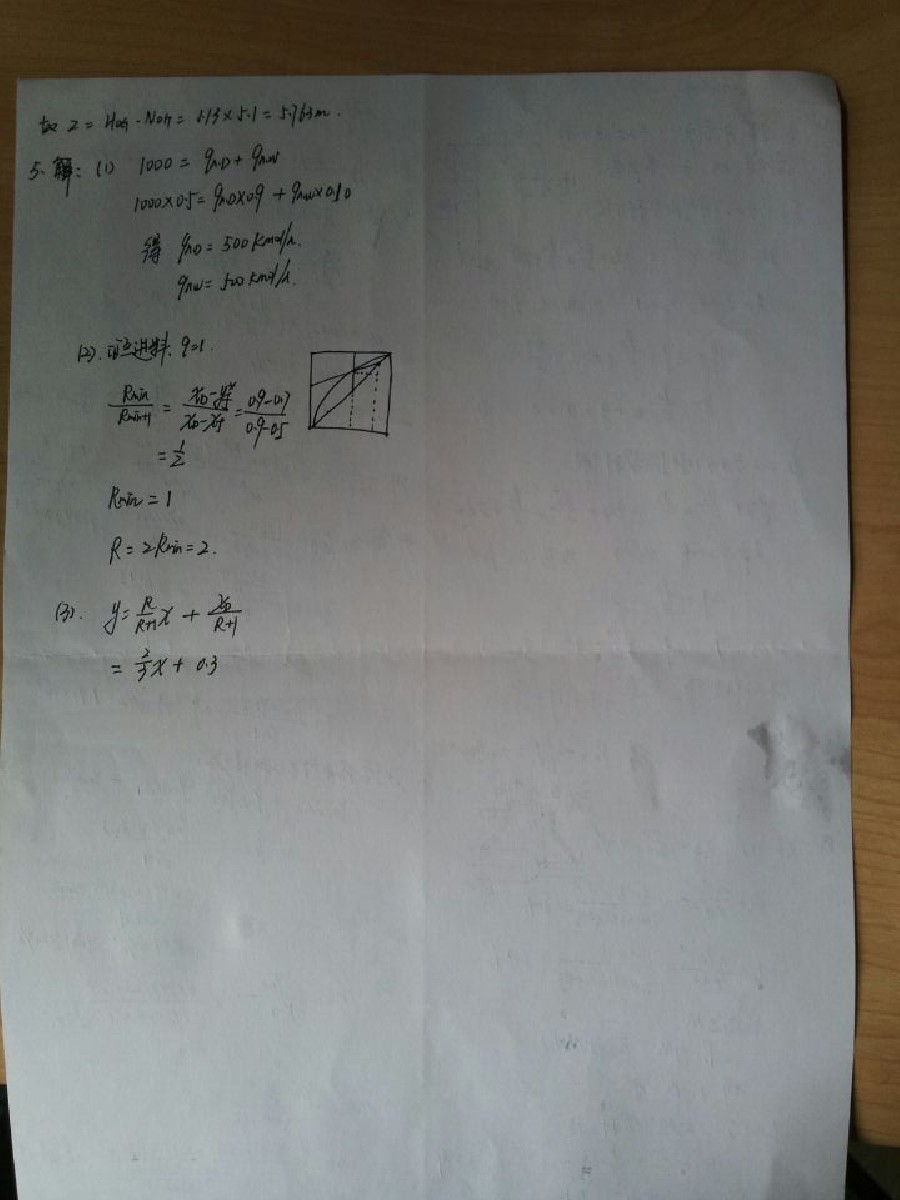 故 Z = HOG·NOG = 1.13×5.1 = 5.763m.
5. 解: (1) 1000 = qnD + qnW
1000×0.5 = qnD×0.9 + qnW×0.10
得 qnD = 500 kmol/h.
qnW = 500 kmol/h.
(2). 泡点进料, q=1.
Rmin/(Rmin+1) = (xD-yf*)/(xD-xf) = (0.9-0.7)/(0.9-0.5)
= 1/2
Rmin = 1
R = 2Rmin = 2.
(3). y = R/(R+1) x + xD/(R+1)
= 2/3 x + 0.3